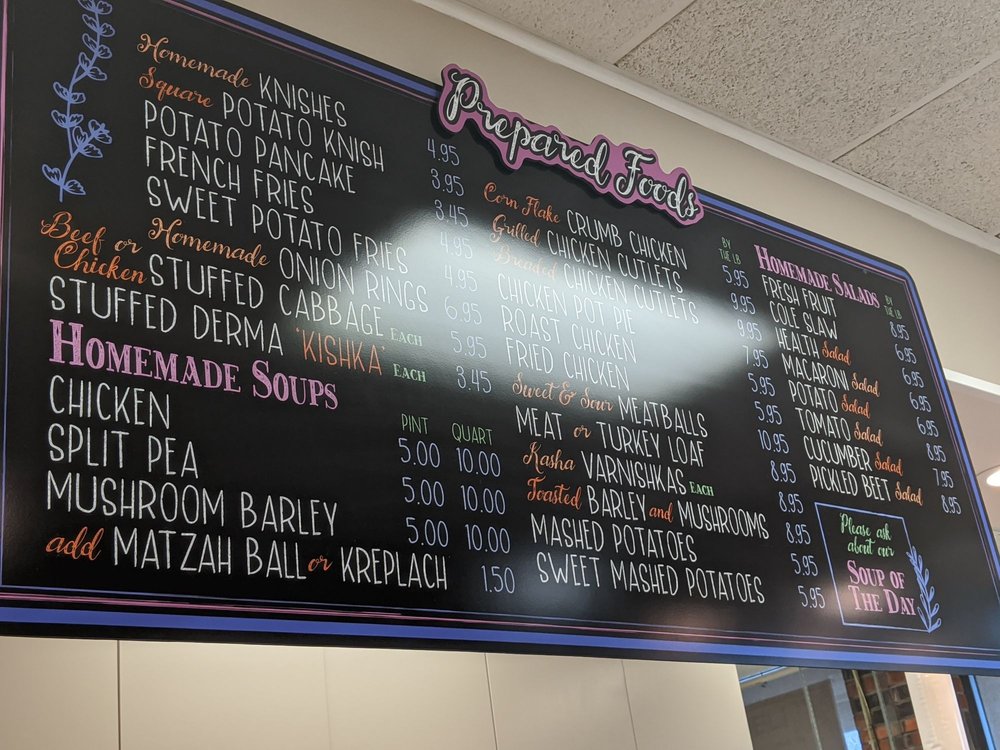 Prepared Foods
Homemade KNISHES 4.95
Square POTATO KNISH 3.95
POTATO PANCAKE 3.45
FRENCH FRIES 4.95
SWEET POTATO FRIES 4.95
Homemade ONION RINGS 6.95
Beef or Chicken STUFFED CABBAGE EACH 5.95
STUFFED DERMA 'KISHKA' EACH 3.45
HOMEMADE SOUPS
PINT QUART
CHICKEN 5.00 10.00
SPLIT PEA 5.00 10.00
MUSHROOM BARLEY 5.00 10.00
add MATZAH BALL or KREPLACH 1.50
BY THE LB
Corn Flake CRUMB CHICKEN 5.95
Grilled CHICKEN CUTLETS 9.95
Breaded CHICKEN CUTLETS 9.95
CHICKEN POT PIE 7.95
ROAST CHICKEN 5.95
FRIED CHICKEN 5.95
Sweet & Sour MEATBALLS 10.95
MEAT or TURKEY LOAF 8.95
Kasha VARNISHKAS EACH 8.95
Toasted BARLEY and MUSHROOMS 8.95
MASHED POTATOES 5.95
SWEET MASHED POTATOES 5.95
HOMEMADE SALADS BY THE LB
FRESH FRUIT 8.95
COLE SLAW 6.95
HEALTH Salad 6.95
MACARONI Salad 6.95
POTATO Salad 6.95
TOMATO Salad 8.95
CUCUMBER Salad 7.95
PICKLED BEET Salad 8.95
Please ask
about our
SOUP OF
THE DAY